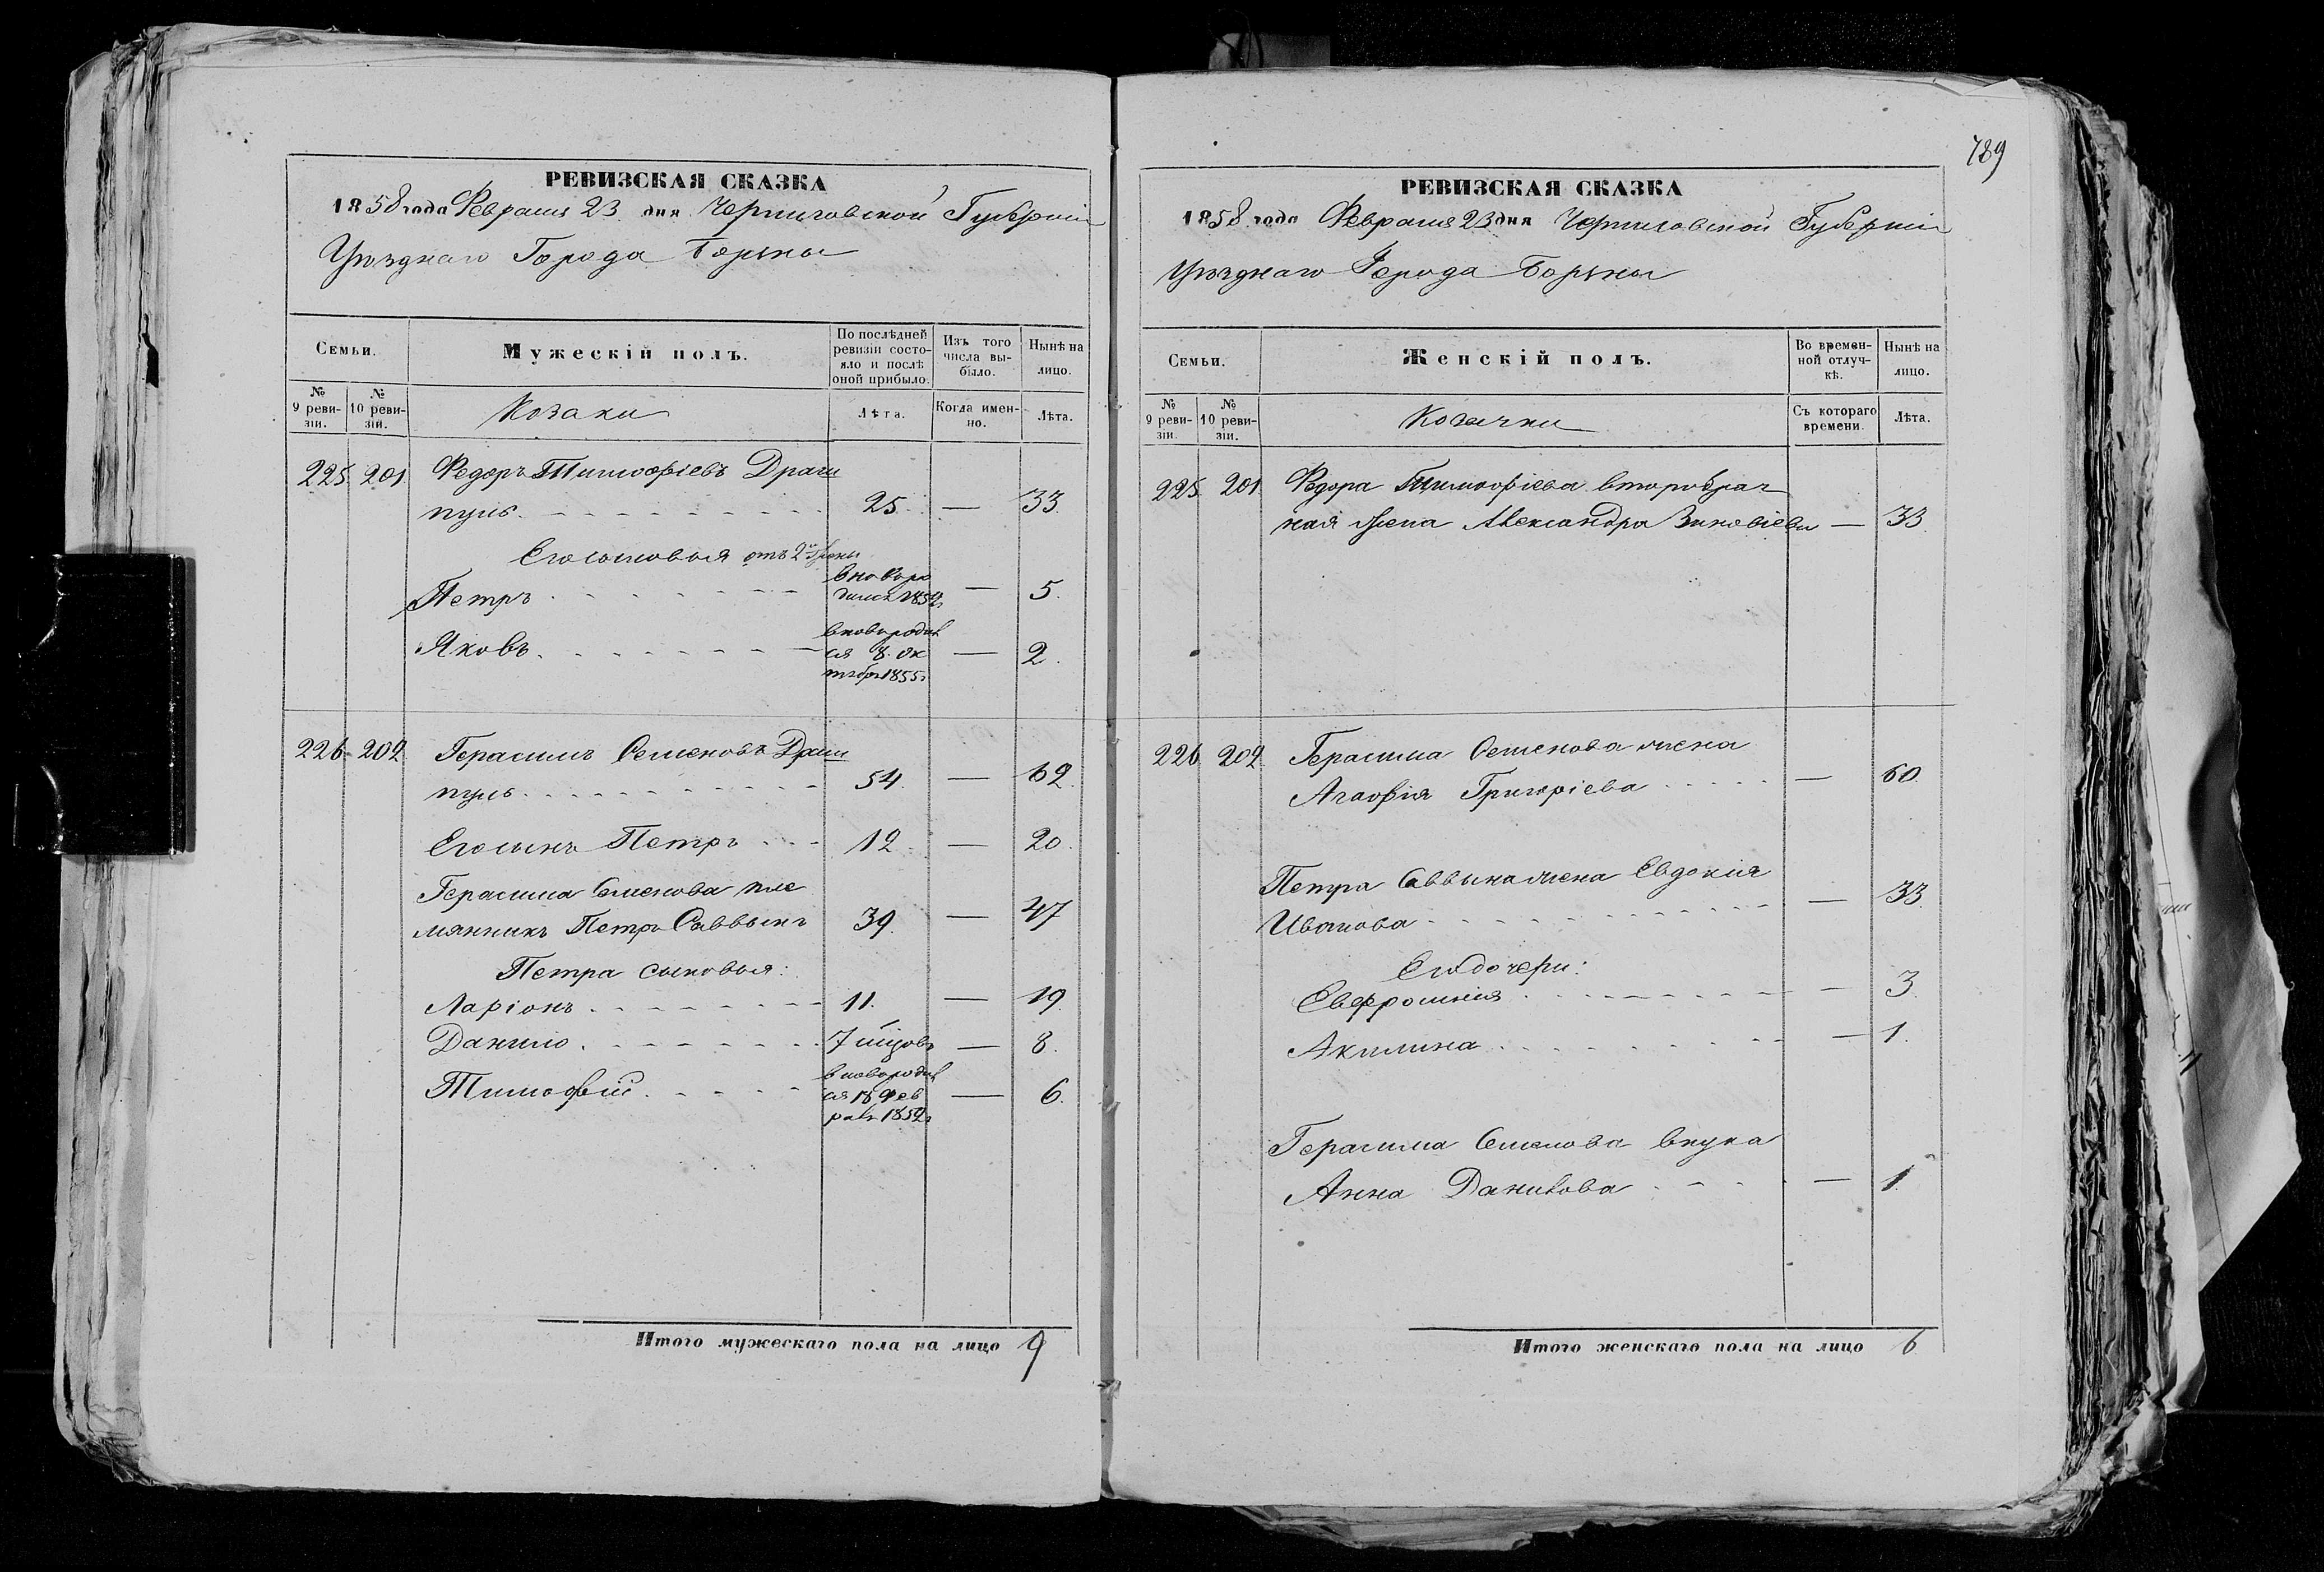 РЕВИЗСКАЯ СКАЗКА
1858 года Февраля 23 дня Черниговской Губерніи
Уѣзднаго Города Борзны
Семьи.
Мужескій полъ.
По послѣдней ревизіи состояло и послѣ оной прибыло.
Изъ того числа выбыло.
Нынѣ на лицо.
№ 9 ревизіи.
№ 10 ревизій.
Козаки
Лѣта.
Когда именно.
Лѣта.
225 201 Федоръ Тимофіевъ Драги
пуль 25 — 33
Его сыновья отъ 2й жены
Петръ — 5.
Яковъ вновь родив
ся 8 Ок
тября 1855г — 2.
226 202 Герасимъ Семеновъ Драги
пуль 54 — 62.
Его сынъ Петръ 12 — 20.
Герасима Семенова пле
мянникъ Петръ Саввынъ 39 — 47
Петра сыновья:
Ларіонъ 11. — 19
Данило 7 мѣсяцовъ — 8.
Тимофій вновь родив
ся 18 Фев
раля 1852г — 6.
Итого мужескаго пола на лицо 9
789
РЕВИЗСКАЯ СКАЗКА
1858 года Февраля 23 дня Черниговской Губерніи
Уѣзднаго Города Борзны
Семьи.
Женскій полъ.
Во временной отлучкѣ.
Нынѣ на лицо.
№ 9 ревизіи.
№ 10 ревизіи.
Козачки
Съ котораго времени.
Лѣта.
225 201 Федора Тимофіева второбрач
ная жена Александра Зиновіева — 33
226 202 Герасима Семенова жена
Агафія Григоріева — 60.
Петра Саввына жена Евдокія
Иванова — 33
Его дочери:
Евфросинія — 3
Акилина — 1.
Герасима Семенова внука
Анна Данилова — 1.
Итого женскаго пола на лицо 6